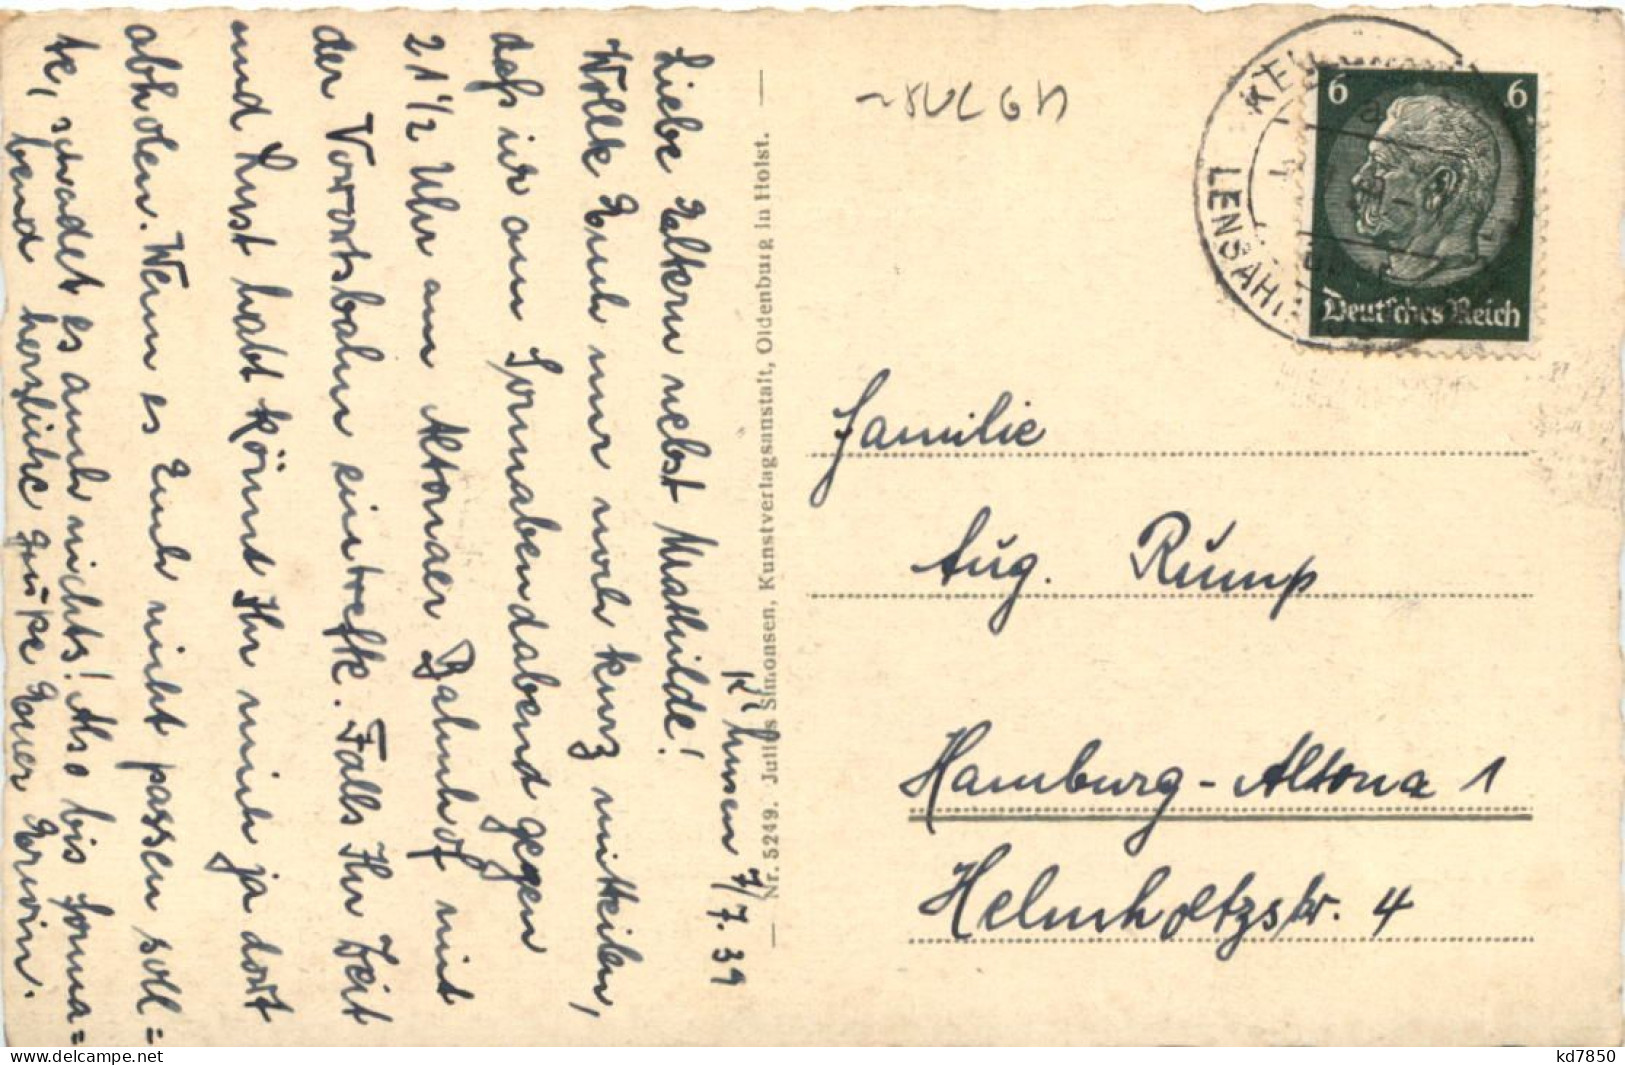 K'husen 7/7. 39
Liebe Eltern nebst Mathilde!
Wollte Euch nur noch kurz mitteilen,
daß wir am Sonnabendabend gegen
21 1/2 Uhr am Altonaer Bahnhof mit
der Vorortsbahn eintreffe. Falls Ihr Zeit
und Lust habt könnt Ihr mich ja dort
abholen. Wenn es Euch nicht passen soll=
te, schadet es auch nichts! Also bis Sonna=
bend herzliche Grüße Euer Erwin.
Nr. 5249. Julius Simonsen, Kunstverlagsanstalt, Oldenburg in Holst.
6 6
Deutsches Reich
LENSAH
Familie
Aug. Rump
Hamburg-Altona 1
Helmholtzstr. 4
www.delcampe.net
kd7850